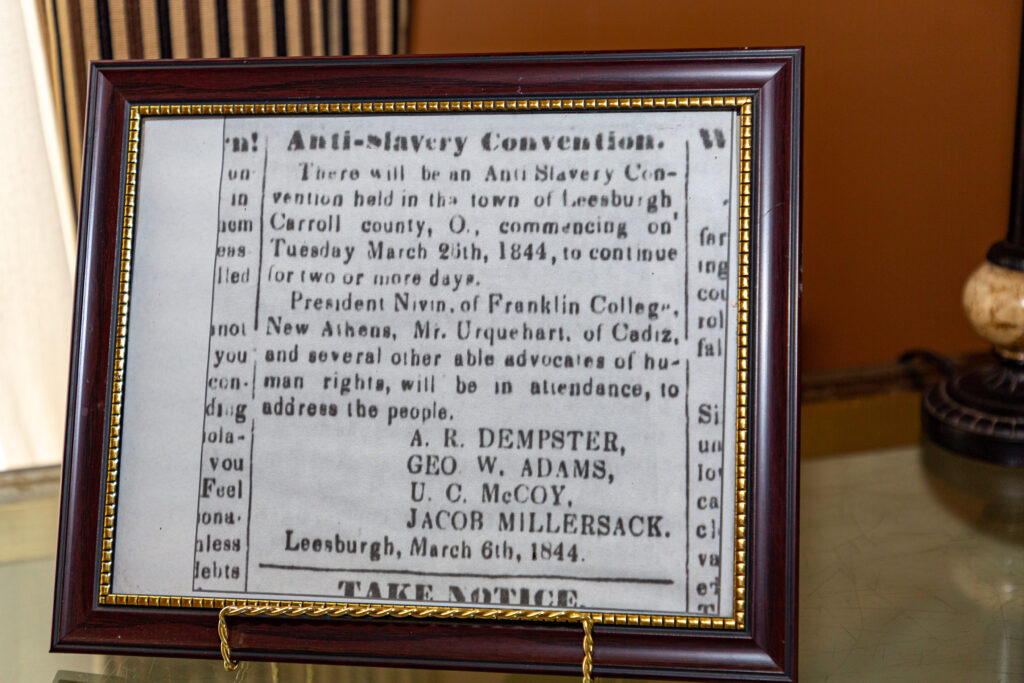 'n!
un
in
nem
eas
lled
not
you
con-
ding
iola-
you
Feel
ona-
nless
lebts
Anti-Slavery Convention.
There will be an Anti Slavery Con-
vention held in the town of Leesburgh
Carroll county, O., commencing on
Tuesday March 26th, 1844, to continue
for two or more days.
President Nivin, of Franklin College,
New Athens, Mr. Urquehart, of Cadiz,
and several other able advocates of hu-
man rights, will be in attendance, to
address the people.
A. R. DEMPSTER,
GEO W. ADAMS,
U. C. McCOY,
JACOB MILLERSACK.
Leesburgh, March 6th, 1844.
TAKE NOTICE.
W
far
ing
cou
rol
fal
Si
un
lot
ca
cl
va
ed